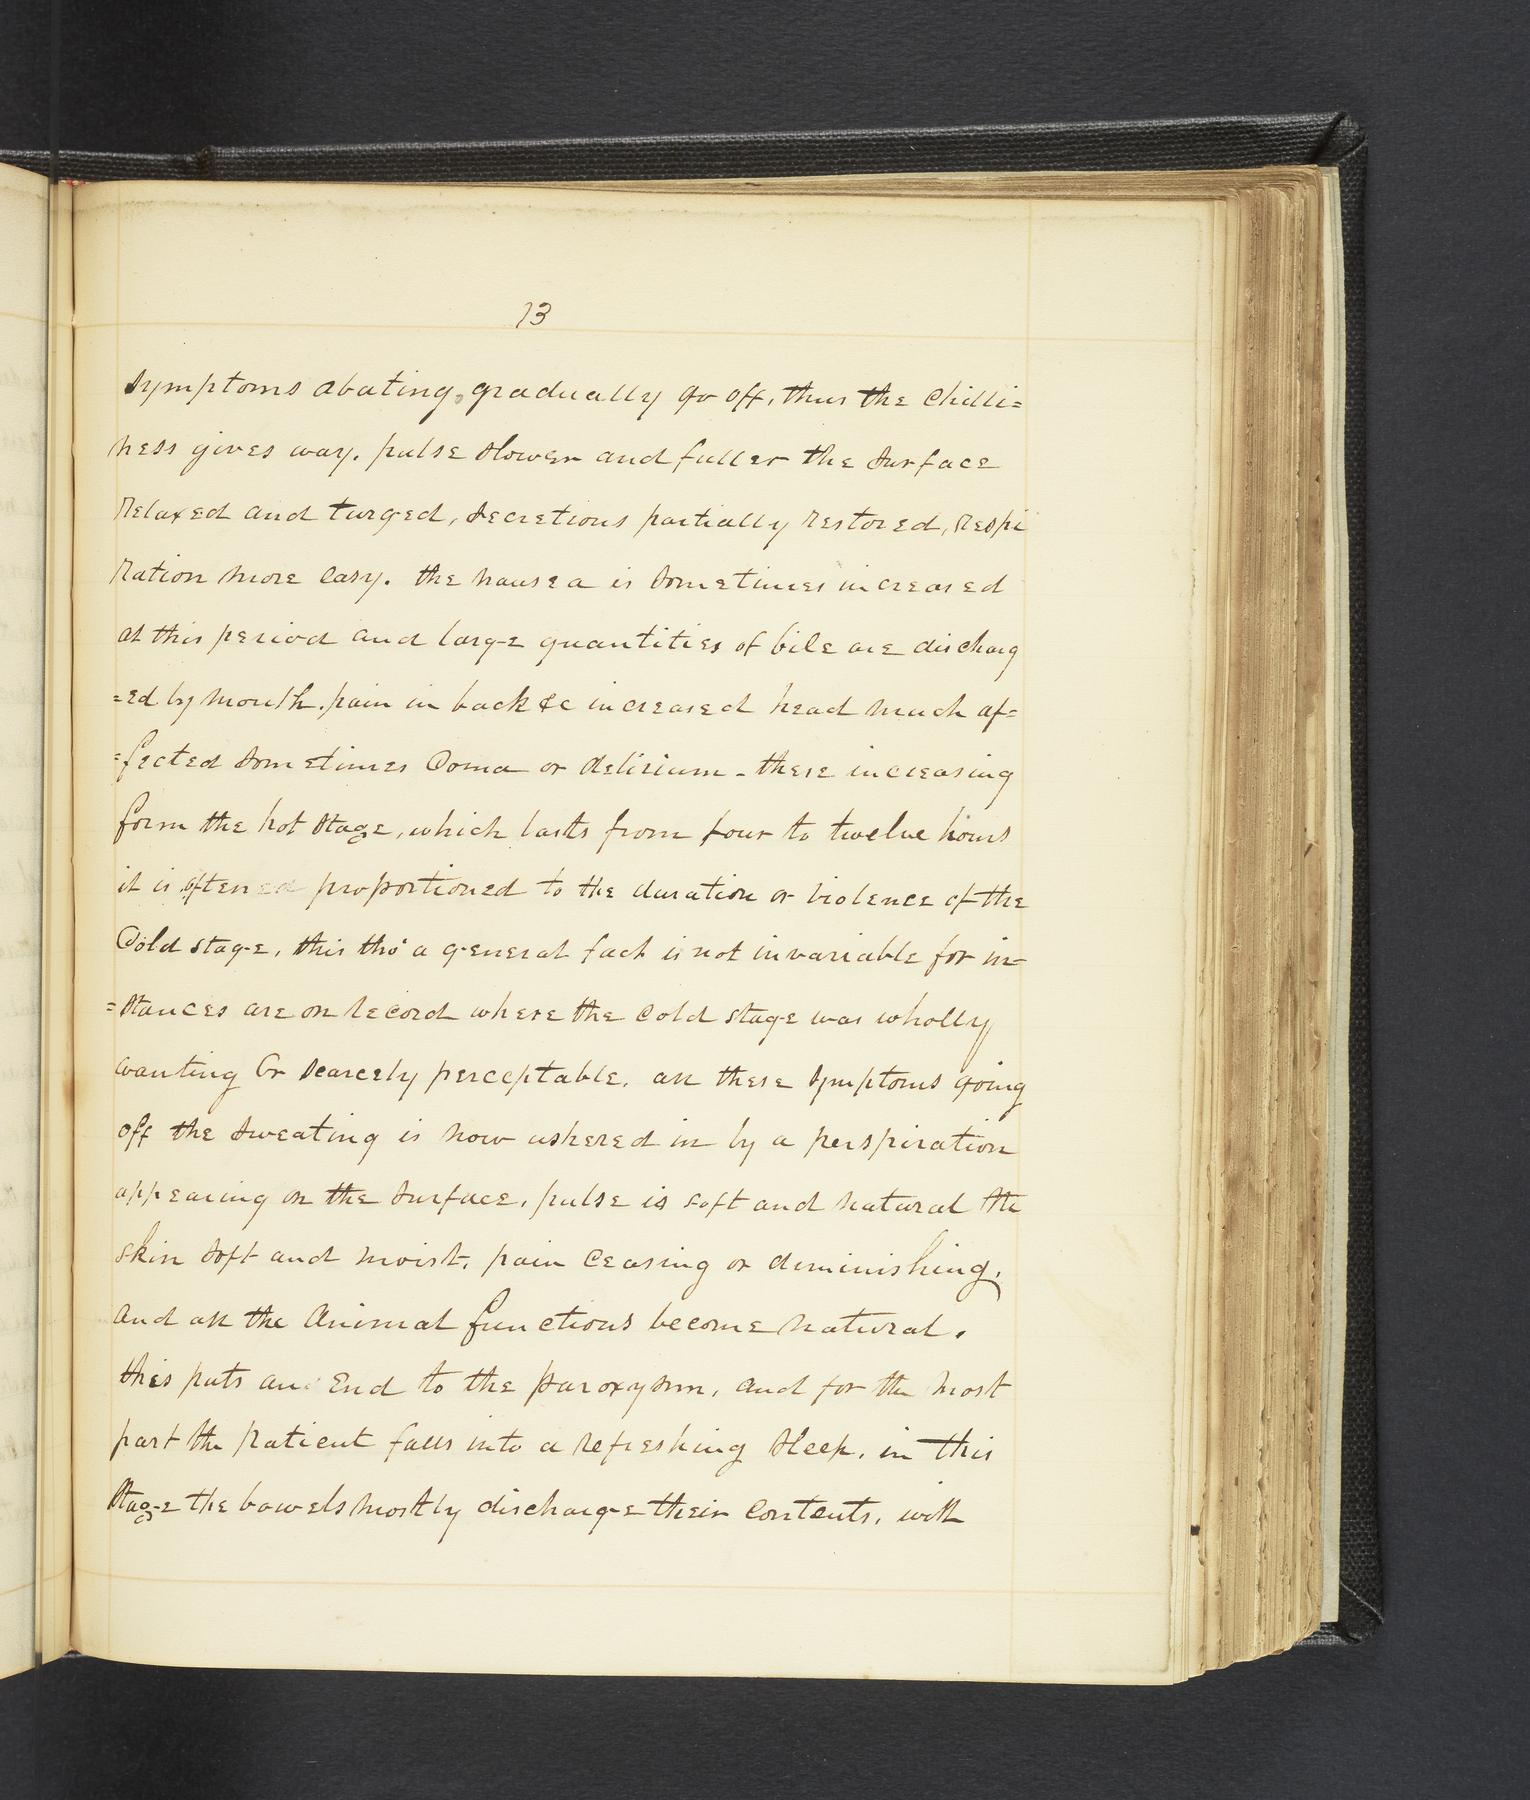 13
symptoms abating, gradually go off, thus the chilli=
ness gives way. pulse slower and fuller the surface
Relaxed and turged, secretions partially restored, Respi
Ration more easy. the nausea is sometimes increased
at this period and large quantities of bile are discharg
=ed by mouth. pain in back &c increased head much af=
=fected sometimes Coma or delirium - these increasing
form the hot stage, which lasts from four to twelve hours
it is often proportioned to the duration or violence of the
Cold stage, this tho' a general fact is not invariable for in=
=stances are on record where the cold stage was wholly
wanting Or scarcely perceptable. all these symptoms going
off the sweating is now ushered in by a perspiration
appearing on the surface, pulse is soft and natural the
skin soft and moist, pain ceasing or diminishing,
and all the Animal functions become natural.
this puts an End to the paroxysm, and for the most
part the patient falls into a refreshing sleep, in this
stage the bowels mostly discharge their contents, with